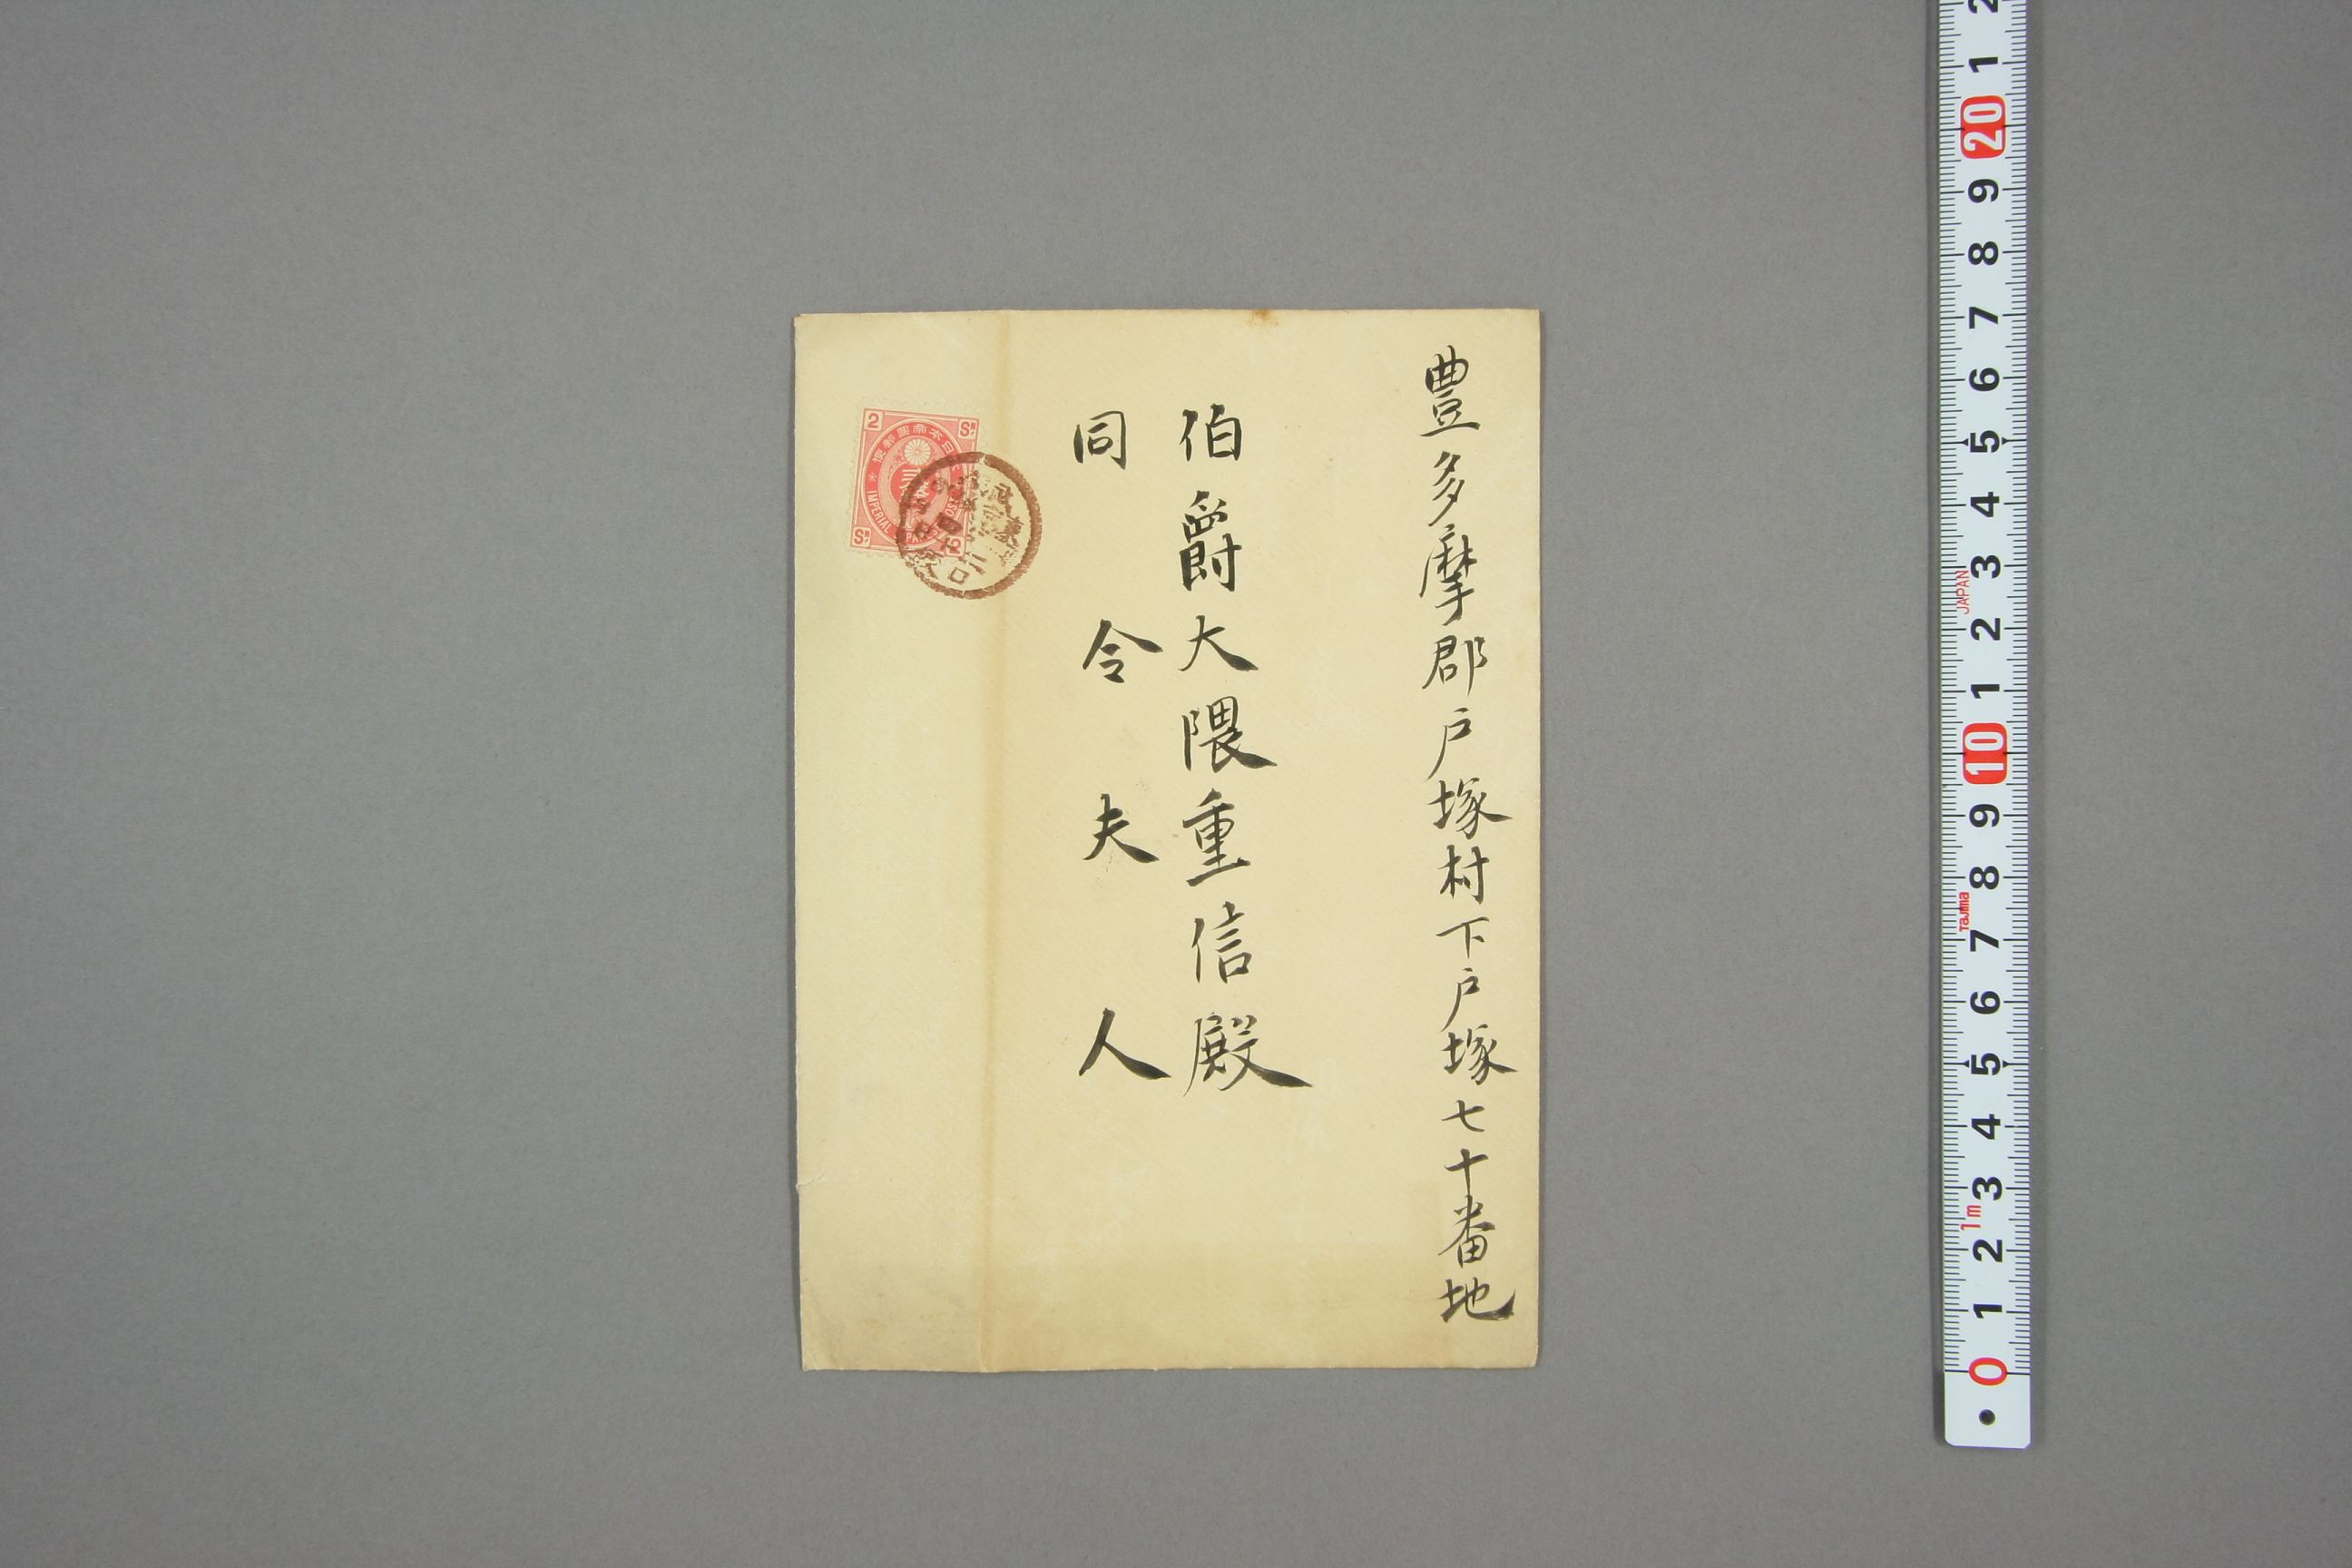 豊多摩郡戸塚村下戸塚七十番地
伯爵大隈重信殿
同令夫人
2 SN
大日本帝國郵便
IMPERIAL
SN 2
2
1
20
9
8
7
6
5
4
3
JAPAN
2
1
10
9
8
Tajima
7
6
5
4
3
1m
2
1
0